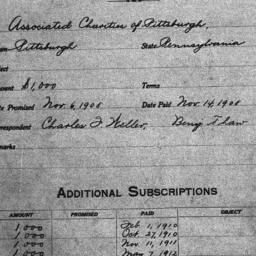 Associated Charities of Pittsburgh,
Pittsburgh State Pennsylvania
$1,000 Terms
Promised Nov. 6, 1908 Date Paid Nov. 14, 1908
Charles F Weller,
ADDITIONAL SUBSCRIPTIONS
AMOUNT PROMISED PAID OBJECT
1,000 Feb 1, 1910
1,000 Oct. 27, 1910
1,000 Nov. 11, 1911
1,000 May 7, 1912